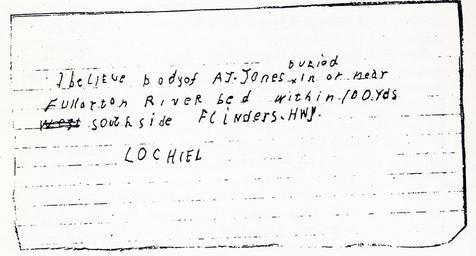 buried
I believe body of A.J. Jones x in or near
Fullarton River bed within 100.Yds
west south side Flinders.Hwy.
LOCHIEL